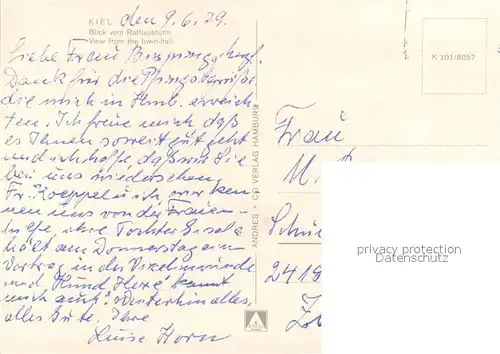 KIEL den 9.6.79.
Blick vom Rathausturm
View from the town-hall
Liebe Frau herzl.
Dank für die Pfingstgrüße,
die mich in Hmb. erreich
ten. Ich freue mich daß
es Ihnen soweit gut geht
und ich hoffe, daß wir Sie
bei uns wiedersehen.
Fr. Koeppel u. ich, wir ken
nen uns von der Frauen-
hilfe, ihre Tochter Gisela
hält am Donnerstag ein
Vortrag in der Vicelinrunde
und "Hund Hexe" kennt
mich auch! Weiterhin alles,
alles Gute. Ihre
Luise Horn
ANDRES + CO VERLAG HAMBURG
K 101/6057
Frau
M.
2419
privacy protection
Datenschutz